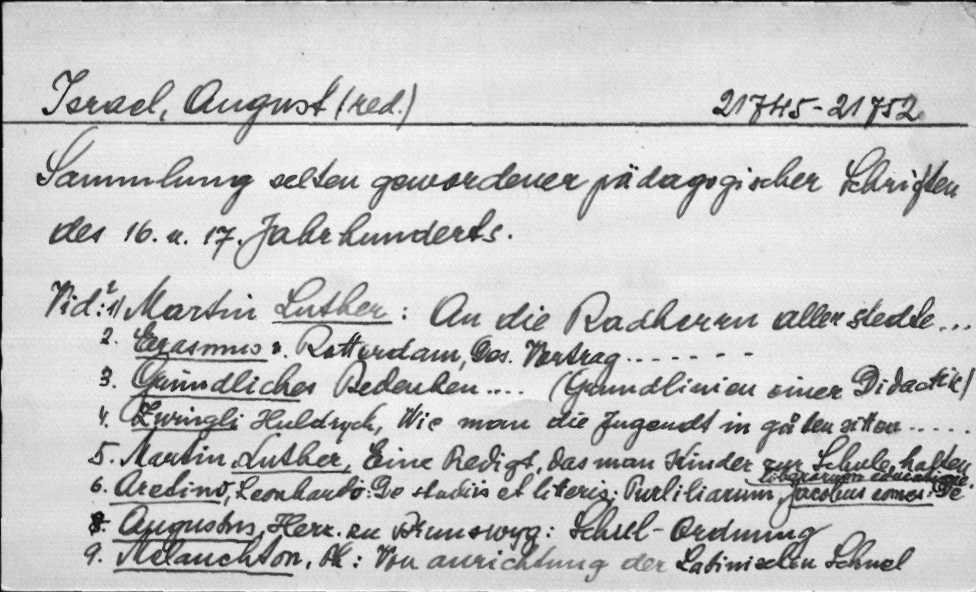 Israel, August (red.) 21745-21752
Sammlung selten gewordener pädagogischer Schriften
des 16. u. 17. Jahrhunderts.
Vid: 1) Martin Luther: An die Radherrn aller stedte...
2. Erasmus v. Rotterdam, Das. Vortrag.......
3. Gründliches Bedenken.... (Grundlinien einer Didactik)
4. Zwingli Huldrych, Wie man die Jugendt in güten sitten.....
5. Martin Luther, Eine Predigt, das man Kinder zur Schule halten
liberorum educatione.
6. Aretino, Leonhardo: De studiis et literis; Purliliarum, Jacobus comes: De
8. Augustus, Herz. zu Brunswyg: Schul-Ordnung
9. Melanchton, Ph: Von anrichtung der Latinischen Schuel